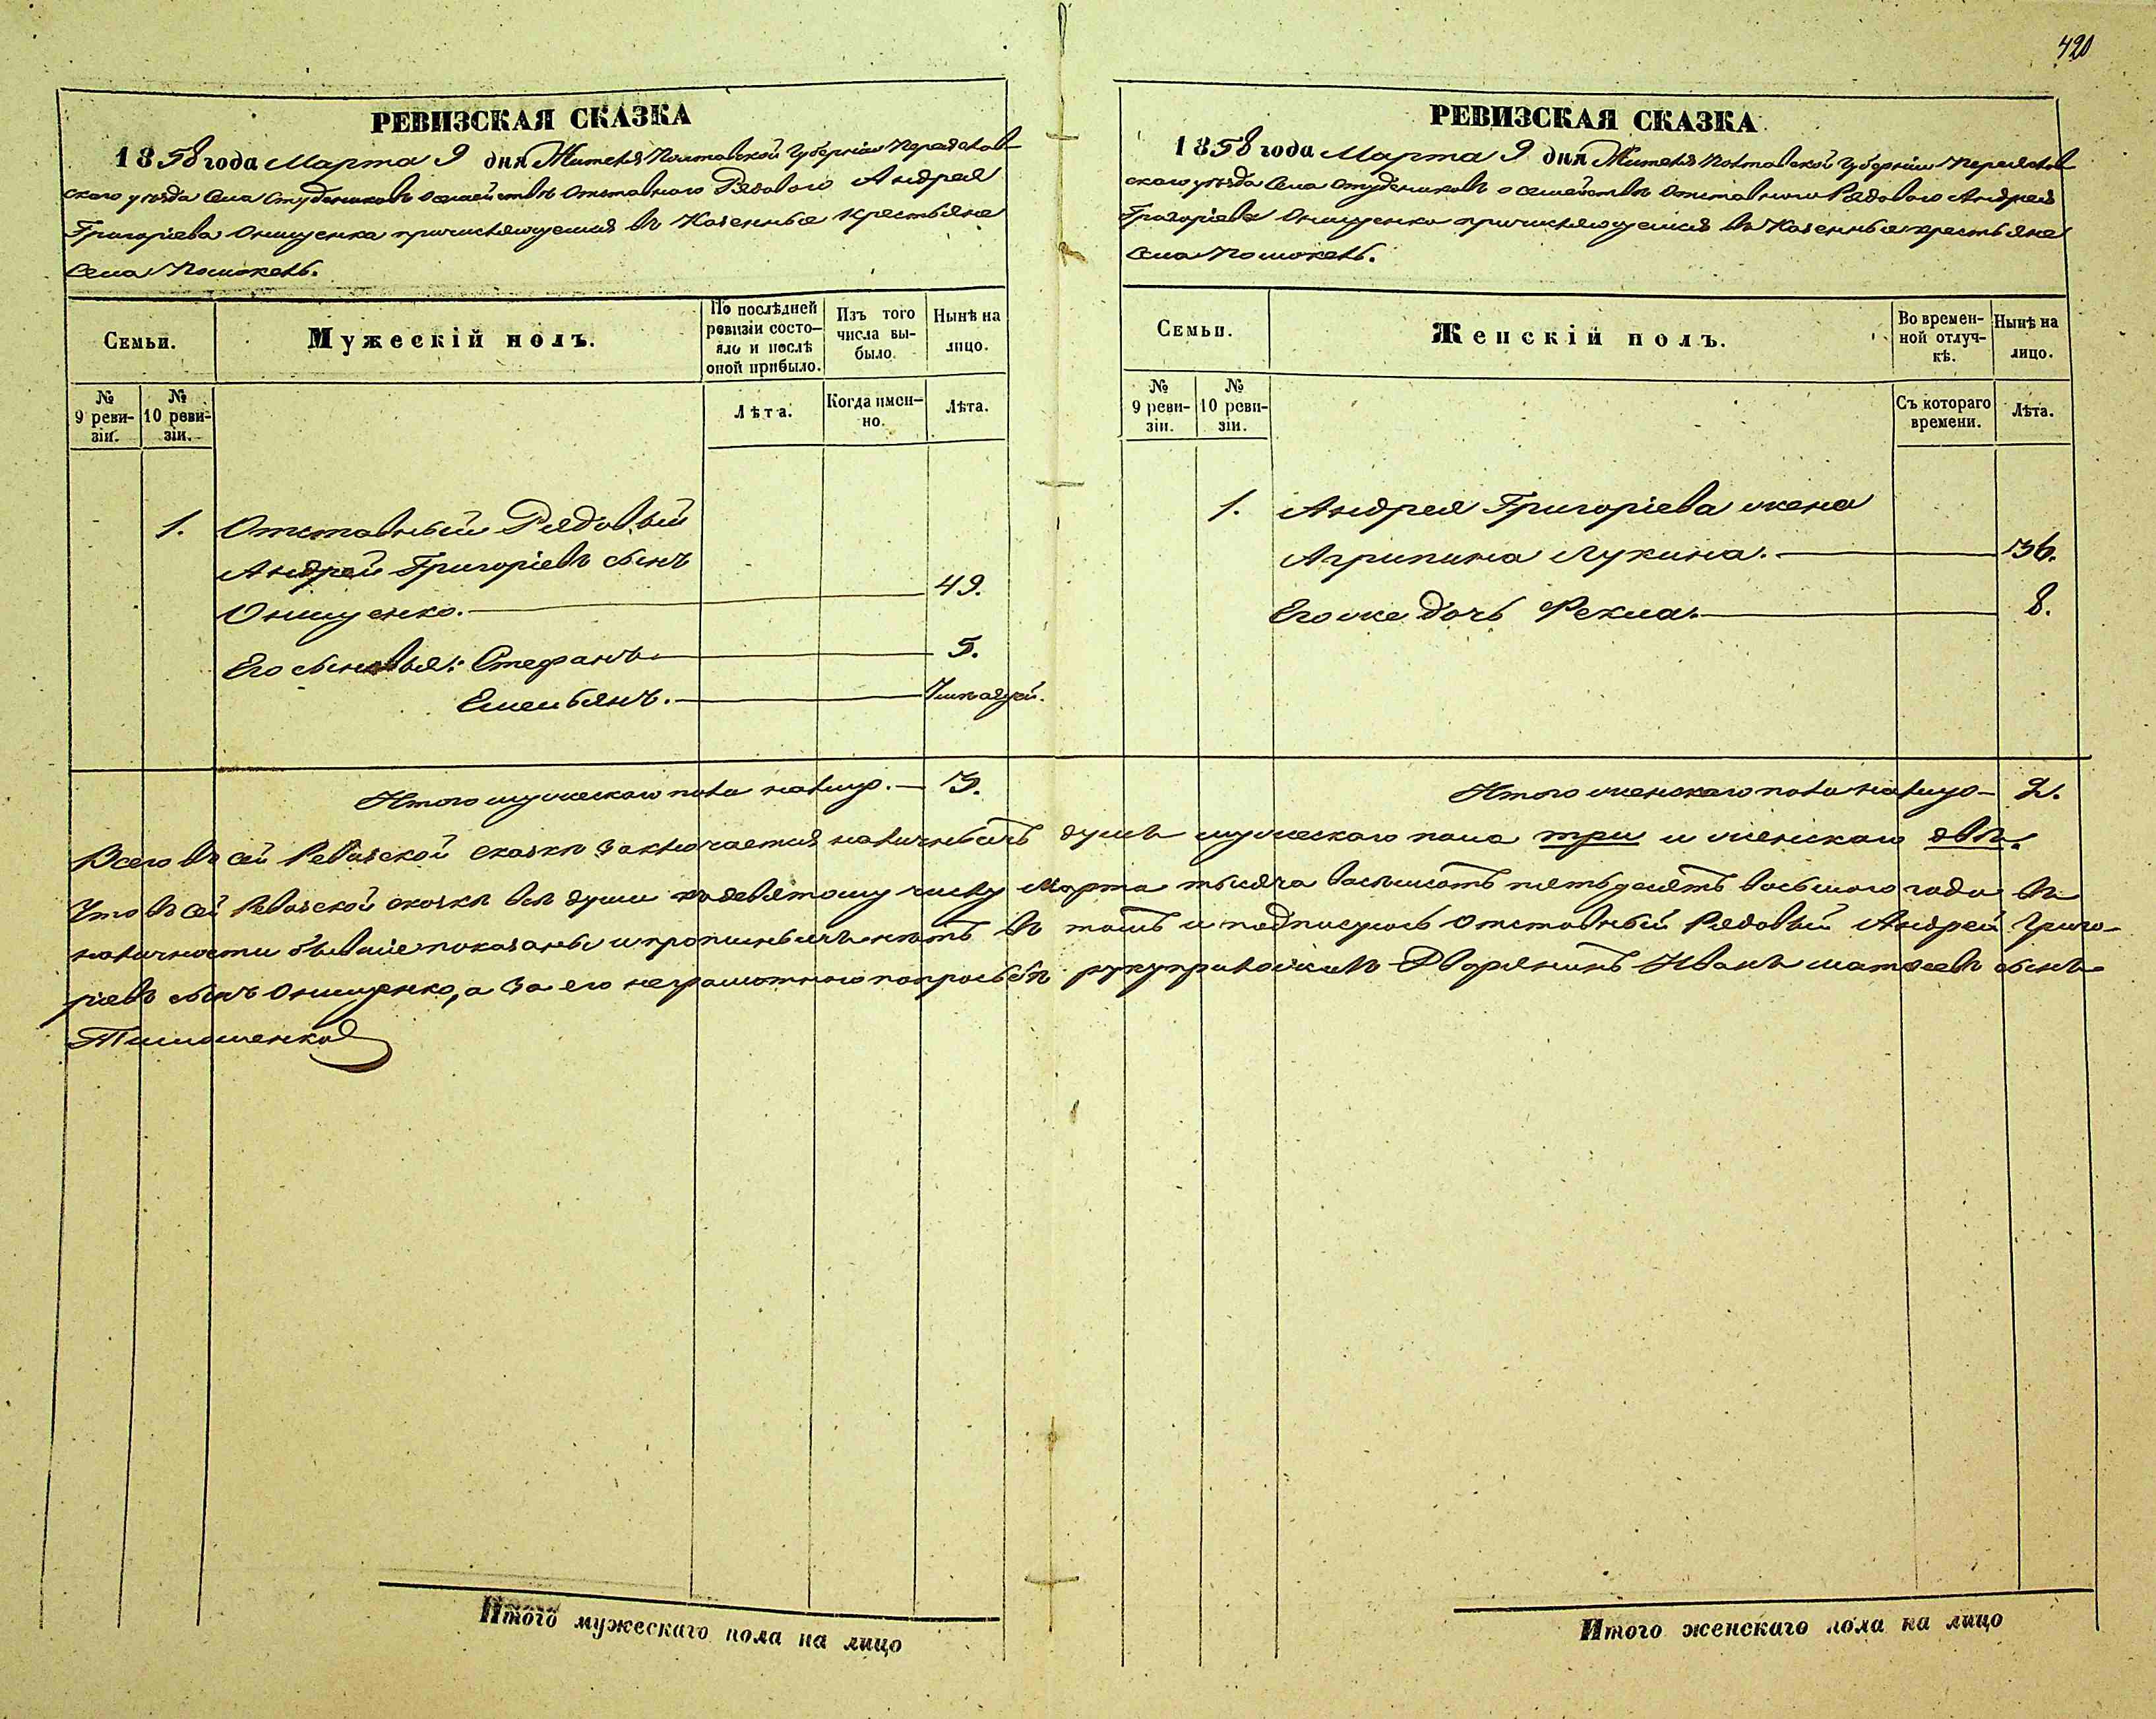 420
РЕВИЗСКАЯ СКАЗКА
1858 года Марта 9 дня Жителя Полтавской Губерніи Переяслов-
скаго уѣзда Села Студениковъ о семействѣ Отставнаго Рядоваго Андрея
Григоріева Онищенка причисляющемся въ Казенные крестьяне
Села Помоклъ.
Семьи.
Мужескій полъ.
По послѣдней ревизіи состо-яло и послѣ оной прибыло.
Изъ того числа вы-было.
Нынѣ на лицо.
№ 9 реви-зіи.
№ 10 реви-зіи.
Лѣта.
Когда имен-но.
Лѣта.
1. Отставный Рядовый
Андрей Григоріевъ сынъ
Онищенко. 49.
Его сыновья: Стефанъ 5.
Емельянъ. 7 мѣсяцей.
Итого мужескаго пола налицо. 3.
РЕВИЗСКАЯ СКАЗКА
1858 года Марта 9 дня Жителя Полтавской Губерніи Переяслов
скаго уѣзда Села Студениковъ о семействѣ Отставнаго Рядоваго Андрея
Григоріева Онищенко причисляющемся въ Казенные крестьяне
Села Помоклъ.
Семьи.
Женскій полъ.
Во времен-ной отлуч-кѣ.
Нынѣ на лицо.
№ 9 реви-зіи.
№ 10 реви-зіи.
Съ котораго времени.
Лѣта.
1. Андрея Григоріева жена
Агрипина Лукина. 36.
Его же дочь Фекла. 8.
Итого женскаго пола налицо 2.
Всего въ сей Ревизской сказкѣ заключается наличныхъ душъ мужескаго пола три и женскаго двѣ.
Что въ сей Ревизской сказкѣ всѣ души къ девятому числу Марта тысяча восемсотъ пятьдесятъ восьмаго года въ
наличности бывшіе показаны и прописныхъ нѣтъ въ томъ и подписуюсь Отставный Рядовый Андрей Григо-
ріевъ сынъ Онищенко, а за его неграмотнаго по прозьбѣ рукуприложилъ Дворянинъ Иванъ Матвеевъ сынъ
Тимошенко
Итого мужескаго пола на лицо
Итого женскаго пола на лицо